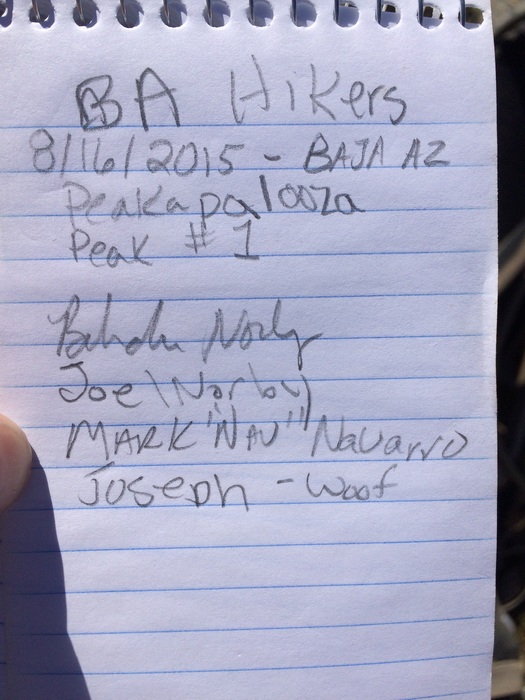 BA Hikers
8/16/2015 - BAJA AZ
Peakapalooza
Peak # 1
Joe Norby
MARK "NAV" Navarro
Joseph - Woof